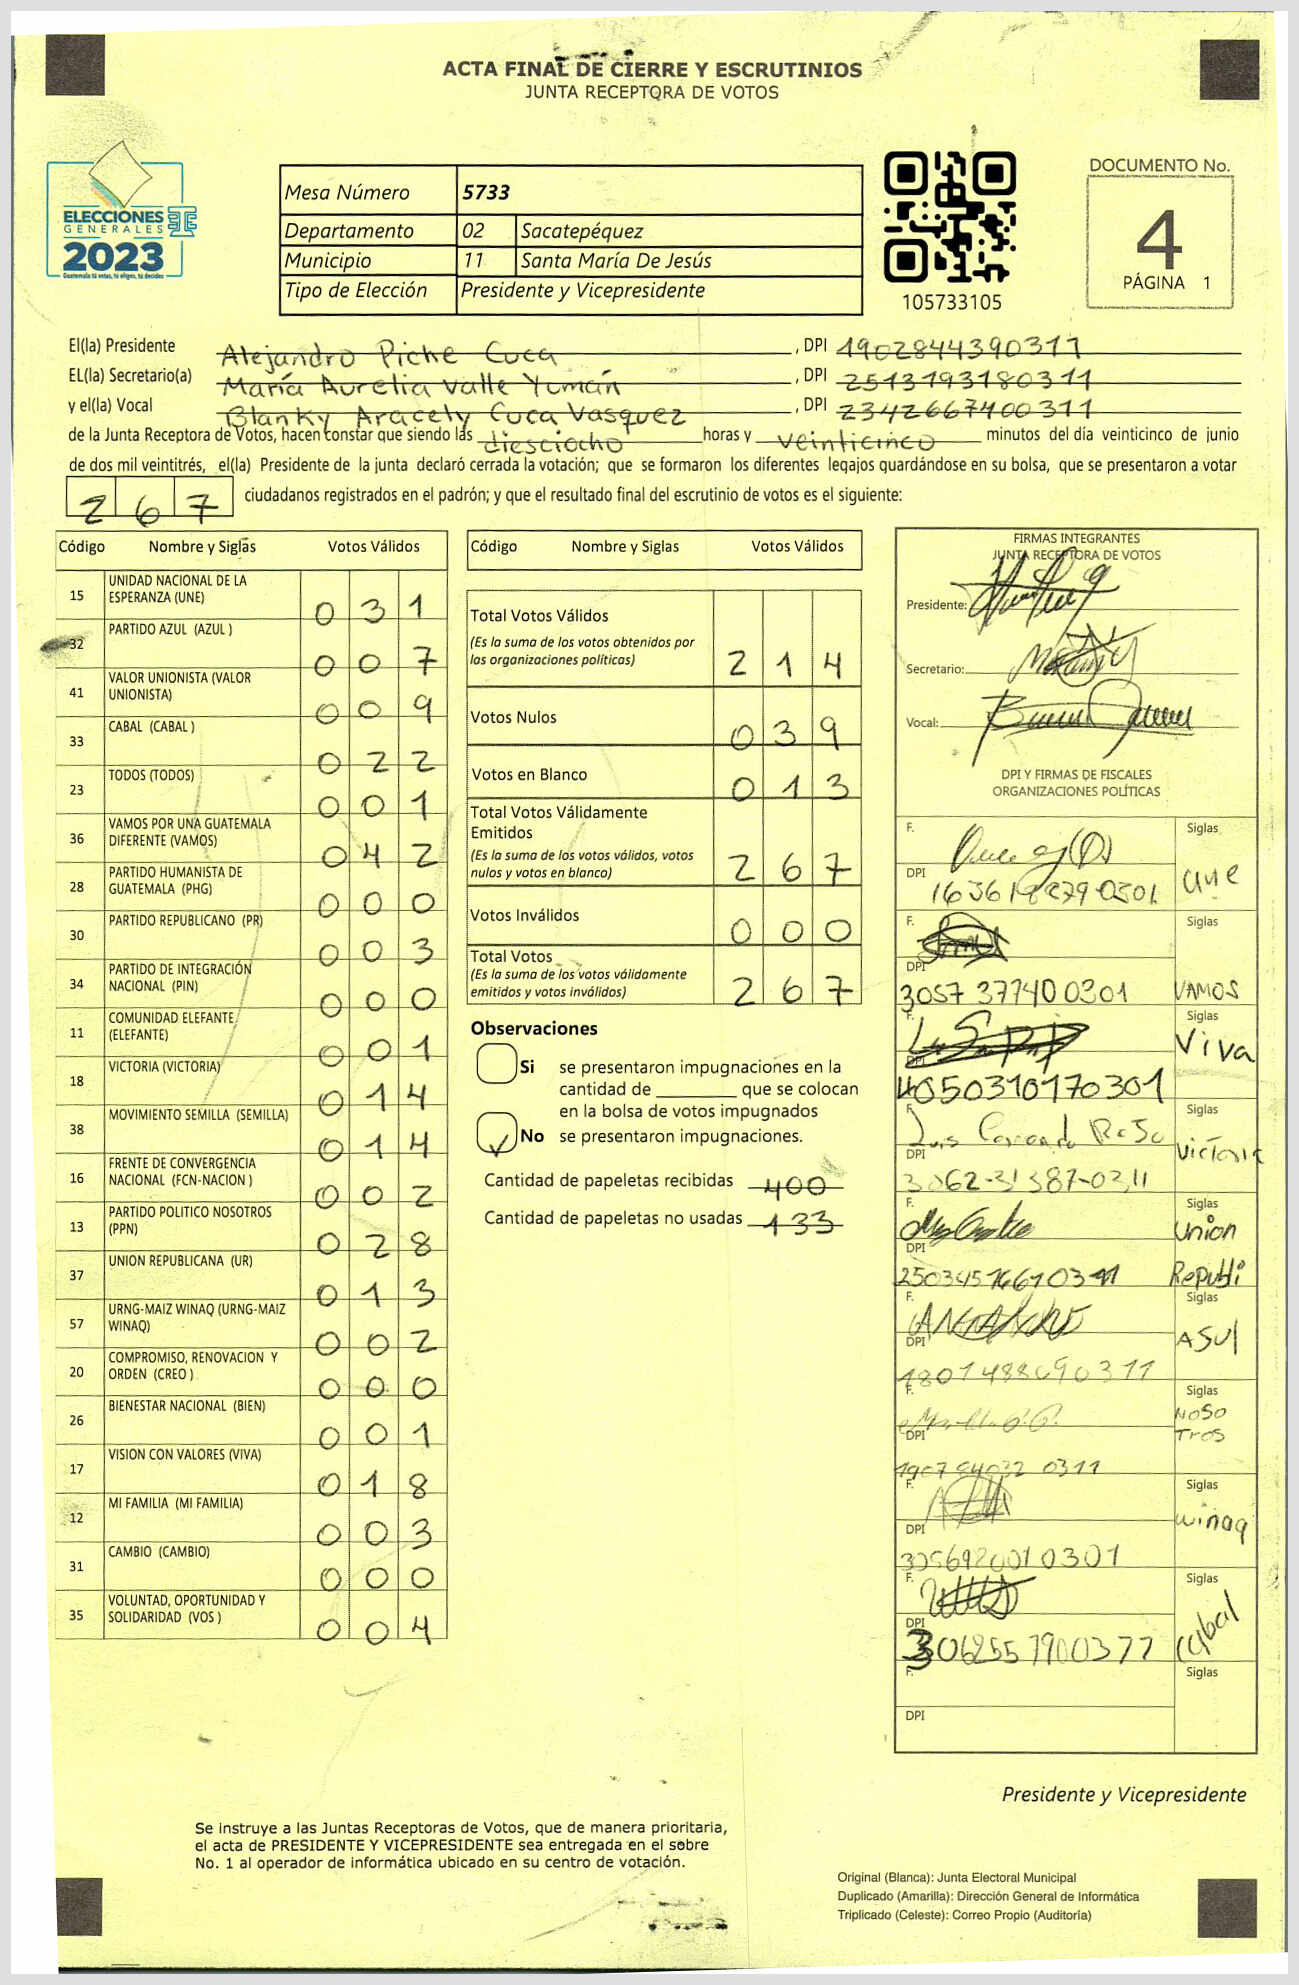 ACTA FINAL DE CIERRE Y ESCRUTINIOS
JUNTA RECEPTORA DE VOTOS
ELECCIONES
GENERALES
2023
Guatemala tú votas, tú eliges, tú decides
Mesa Número 5733
Departamento 02 Sacatepéquez
Municipio 11 Santa María De Jesús
Tipo de Elección Presidente y Vicepresidente
105733105
DOCUMENTO No.
4
PÁGINA 1
El(la) Presidente Alejandro Piche Cuca , DPI 1902844390311
EL(la) Secretario(a) María Aurelia Valle Yumán , DPI 2513193180311
y el(la) Vocal Blanky Aracely Cuca Vasquez , DPI 2342667400311
de la Junta Receptora de Votos, hacen constar que siendo las diesciocho horas y veinticinco minutos del día veinticinco de junio
de dos mil veintitrés, el(la) Presidente de la junta declaró cerrada la votación; que se formaron los diferentes legajos guardándose en su bolsa, que se presentaron a votar
267 ciudadanos registrados en el padrón; y que el resultado final del escrutinio de votos es el siguiente:
Código Nombre y Siglas Votos Válidos
15 UNIDAD NACIONAL DE LA ESPERANZA (UNE) 031
32 PARTIDO AZUL (AZUL ) 007
41 VALOR UNIONISTA (VALOR UNIONISTA) 009
33 CABAL (CABAL ) 022
23 TODOS (TODOS) 001
36 VAMOS POR UNA GUATEMALA DIFERENTE (VAMOS) 042
28 PARTIDO HUMANISTA DE GUATEMALA (PHG) 000
30 PARTIDO REPUBLICANO (PR) 003
34 PARTIDO DE INTEGRACIÓN NACIONAL (PIN) 000
11 COMUNIDAD ELEFANTE (ELEFANTE) 001
18 VICTORIA (VICTORIA) 014
38 MOVIMIENTO SEMILLA (SEMILLA) 014
16 FRENTE DE CONVERGENCIA NACIONAL (FCN-NACION ) 002
13 PARTIDO POLITICO NOSOTROS (PPN) 028
37 UNION REPUBLICANA (UR) 013
57 URNG-MAIZ WINAQ (URNG-MAIZ WINAQ) 002
20 COMPROMISO, RENOVACION Y ORDEN (CREO ) 000
26 BIENESTAR NACIONAL (BIEN) 001
17 VISION CON VALORES (VIVA) 018
12 MI FAMILIA (MI FAMILIA) 003
31 CAMBIO (CAMBIO) 000
35 VOLUNTAD, OPORTUNIDAD Y SOLIDARIDAD (VOS ) 004
Código Nombre y Siglas Votos Válidos
Total Votos Válidos
(Es la suma de los votos obtenidos por
las organizaciones políticas) 214
Votos Nulos 039
Votos en Blanco 013
Total Votos Válidamente
Emitidos
(Es la suma de los votos válidos, votos
nulos y votos en blanco) 267
Votos Inválidos 000
Total Votos
(Es la suma de los votos válidamente
emitidos y votos inválidos) 267
Observaciones
Si se presentaron impugnaciones en la
cantidad de ________ que se colocan
en la bolsa de votos impugnados
No se presentaron impugnaciones.
Cantidad de papeletas recibidas 400
Cantidad de papeletas no usadas 133
FIRMAS INTEGRANTES
JUNTA RECEPTORA DE VOTOS
Presidente:
Secretario:
Vocal:
DPI Y FIRMAS DE FISCALES
ORGANIZACIONES POLÍTICAS
F. Siglas
DPI une
F. Siglas
DPI
3057 37740 0301 VAMOS
F. Siglas
DPI Viva
4050310170301
F. Luis Siglas
DPI Victoria
F. Siglas
DPI Union
Republi
F. Siglas
DPI ASUl
F. Siglas
DPI NOSO
Tros
F. Siglas
DPI winaq
F. Siglas
DPI Cabal
F. Siglas
DPI
Presidente y Vicepresidente
Se instruye a las Juntas Receptoras de Votos, que de manera prioritaria,
el acta de PRESIDENTE Y VICEPRESIDENTE sea entregada en el sobre
No. 1 al operador de informática ubicado en su centro de votación.
Original (Blanca): Junta Electoral Municipal
Duplicado (Amarilla): Dirección General de Informática
Triplicado (Celeste): Correo Propio (Auditoría)